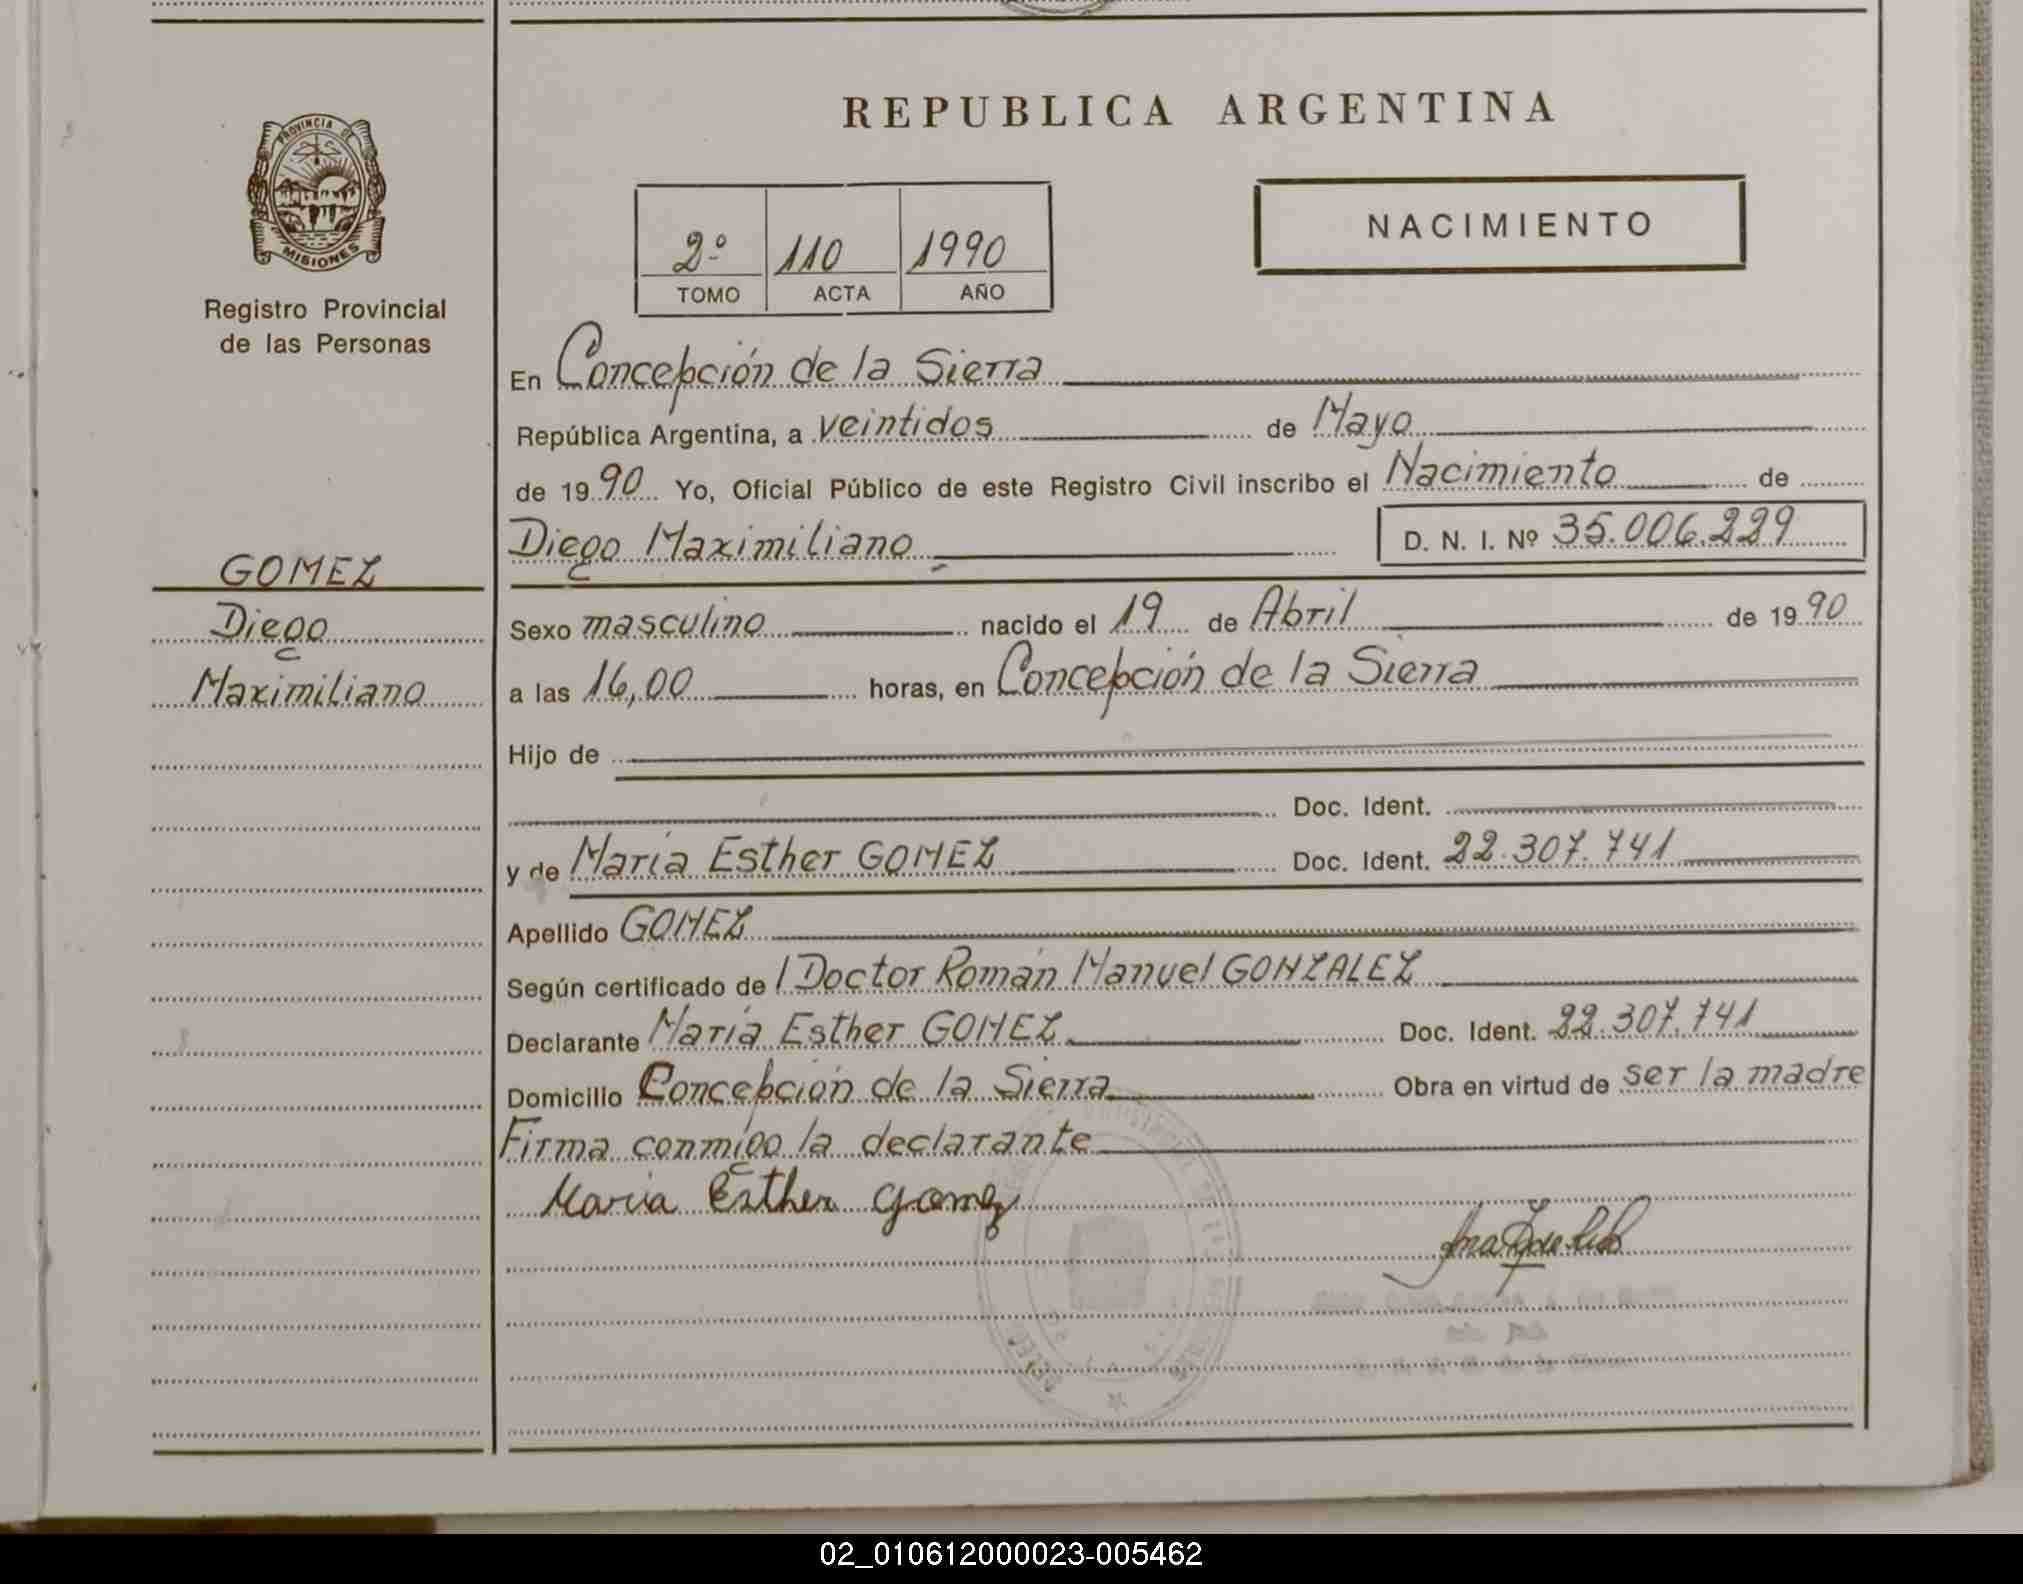 PROVINCIA DE
MISIONES
Registro Provincial
de las Personas
GOMEZ
Diego
Maximiliano
REPUBLICA ARGENTINA
2º 110 1990
TOMO ACTA AÑO
NACIMIENTO
En Concepción de la Sierra
República Argentina, a veintidos de Mayo
de 1990 Yo, Oficial Público de este Registro Civil inscribo el Nacimiento de
Diego Maximiliano D. N. I. Nº 35.006.229
Sexo masculino nacido el 19 de Abril de 1990
a las 16,00 horas, en Concepción de la Sierra
Hijo de
Doc. Ident.
y de María Esther GOMEZ Doc. Ident. 22.307.741
Apellido GOMEZ
Según certificado de l Doctor Román Manuel GONZALEZ
Declarante María Esther GOMEZ Doc. Ident. 22.307.741
Domicilio Concepción de la Sierra Obra en virtud de ser la madre
Firma conmigo la declarante
Maria Esther Gomez
02_010612000023-005462